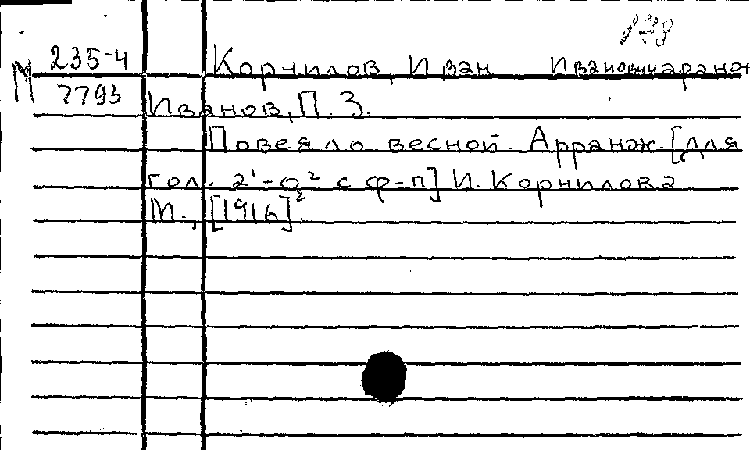 М 235-4 Корнилов, Иван Иванович аранж
7793 Иванов, П. З.
Повеяло весной. Арранж. [для
гол. 2¹-с² с ф-п] И. Корнилова
М., [1916]